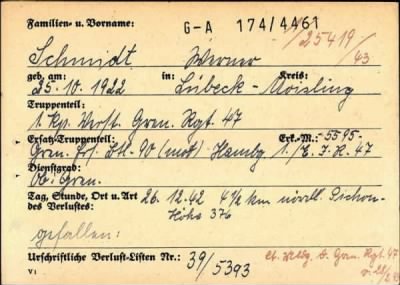 Familien- u. Vorname: G-A 174/4461
Schmidt Werner /25419/43
geb. am: in: Kreis:
25.10.1922 Lübeck-Moisling
Truppenteil:
1. Kp. Verst. Gren. Rgt. 47
Ersatz-Truppenteil: Erk.-M.: -5595-
Gren. Ers. Btl. 90 (mot) Hambg 1./E.J.R. 47
Dienstgrad:
Ob. Gren.
Tag, Stunde, Ort u. Art 26.12.42 4½ km nördl. Sichon-
des Verlustes: Höhe 376
gefallen:
Urschriftliche Verlust-Listen Nr.: 39/5393
lt. Mldg. Gren. Rgt. 47
V1